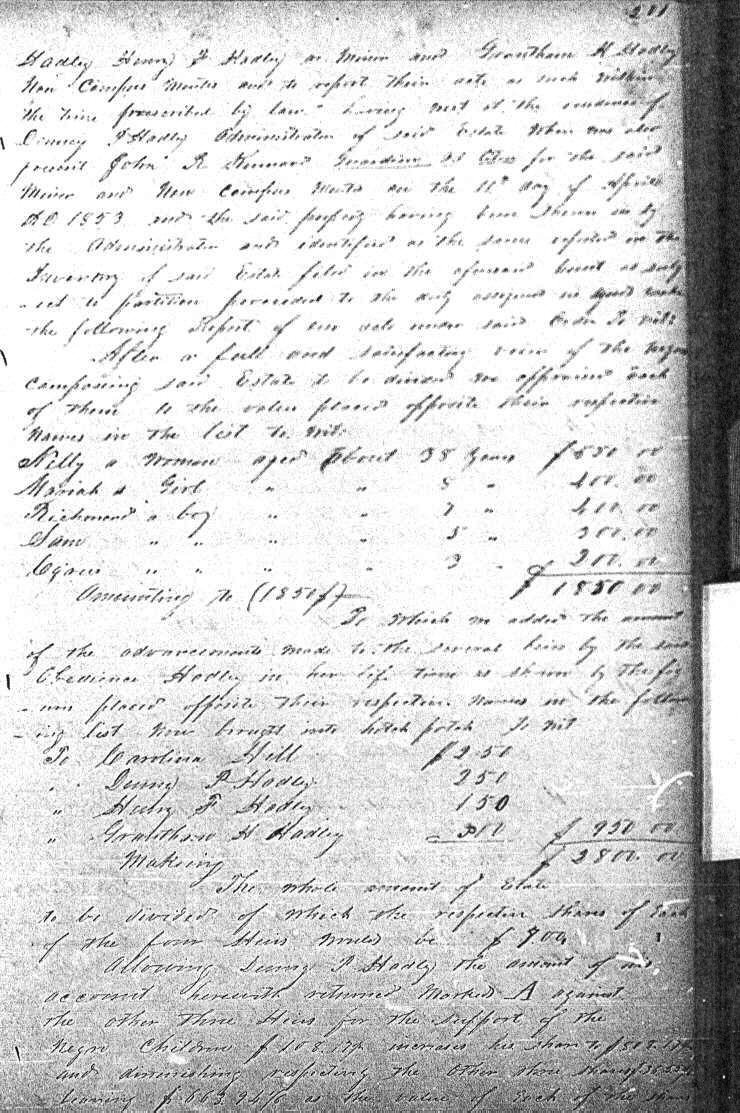 211
Hadley Henry F Hadley a Minor and Grantham H Hadley
Non Compus Mentes and to report their acts as such within
the time prescribed by law. having met at the residence of
Denney P Hadley Administrator of said Estate When was also
present John R Kennard Guardian ad litem for the said
Minor and Non Compus Mentes on the 11th day of April
AD 1853 and the said property having been shown us by
the Administrator and identified as the same reported in the
Inventory of said Estate filed in the aforesaid Court as subj
-ect to partition proceeded to the duty assigned us and make
the following Report of our acts under said Order To Wit:
After a full and satisfactory view of the negroes
composing said Estate to be divided we appraised each
of them to the value placed opposite their respective
Names in the list to Wit.
Nelly a Woman aged About 38 Years $550.00
Mariah a Girl " " 8 " 400.00
Richmond a boy " " 7 " 400.00
Sam " " " " 5 " 300.00
Cyrus " " " " 3 " 200.00
Amounting to (1850$) $1850.00
To Which we added the amount
of the advancements made to the several heirs by the said
Obedience Hadley in her life time as shown by the fig
-ures placed opposite their respective Names in the follow
-ing list Now brought into hotch potch To Wit
To Carolina Hill $250
" Denny P Hadley 250
" Henry F Hadley 150
" Grantham H Hadley 300 $950.00
Making $2800.00
The whole amount of Estate
to be divided of which the respective shares of Each
of the four Heirs would be $700.
Allowing Denny P Hadley the amount of his
account herewith returned Marked A against
the other three Heirs for the support of the
Negro Children $108.17 increases his share to $808.17
and diminishing respecting the other three shares $36.
leaving $663.94 as the value of Each of the shares